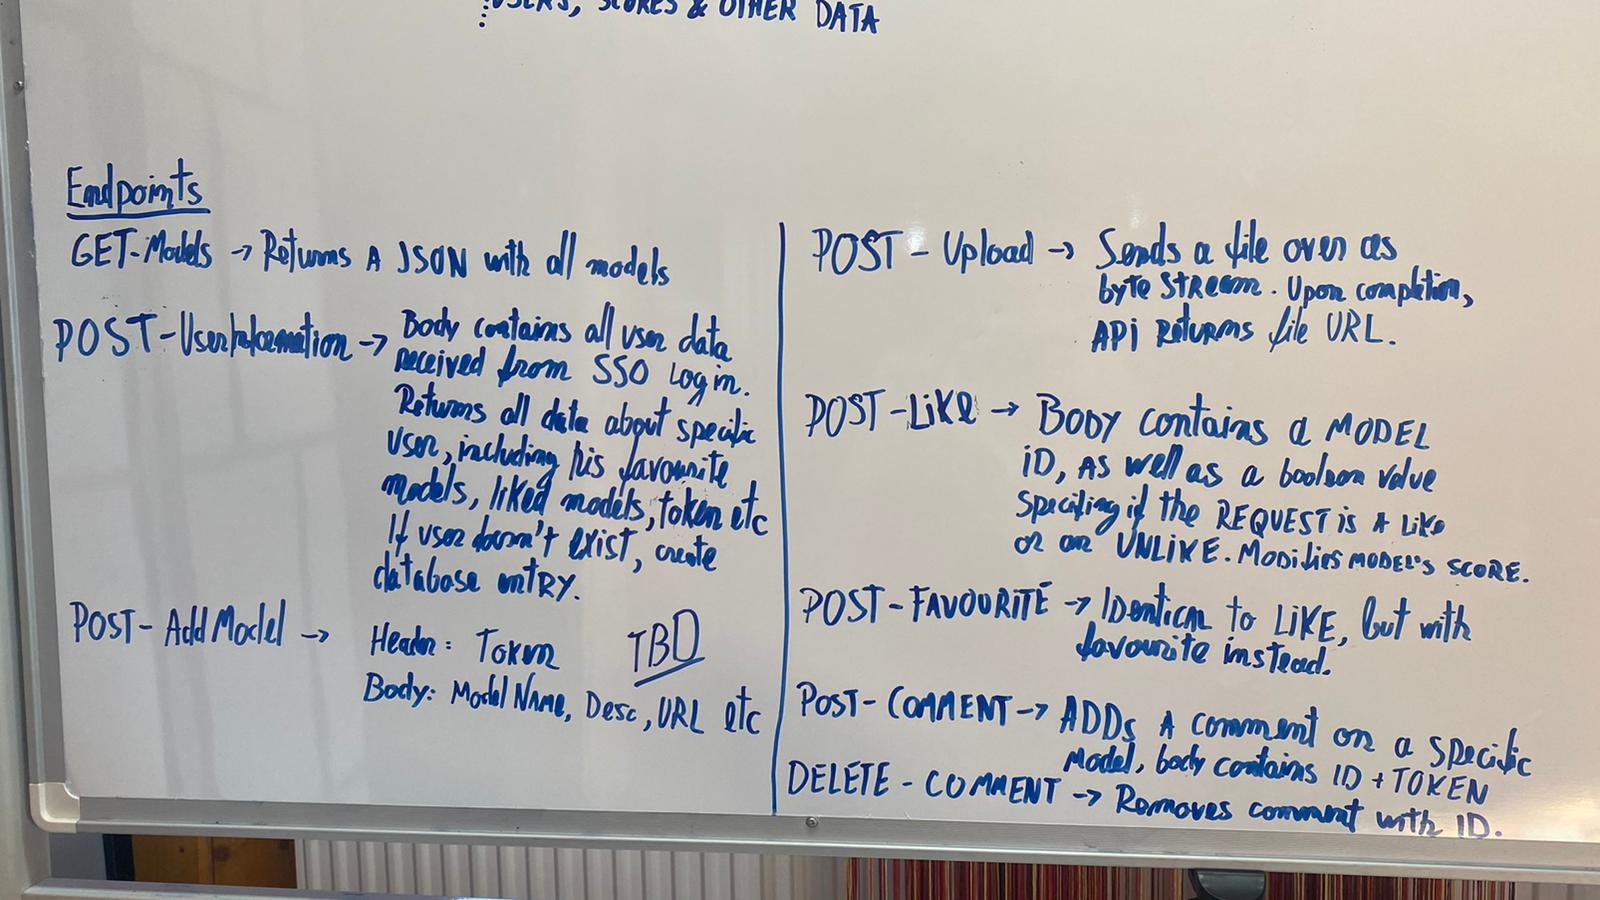 USERS, SCORES & OTHER DATA
Endpoints
GET-Models → Returns A JSON with all models
POST-UserInformation → Body contains all user data
received from SSO Login.
Returns all data about specific
user, including his favourite
models, liked models, token etc
If user doesn't exist, create
database entRY.
POST-AddModel → Header: Token
TBD
Body: Model Name, Desc, URL etc
POST-Upload → Sends a file over as
byte STREAM. Upon completion,
API RETURNS file URL.
POST-LiKe → BODY contains a MODEL
iD, AS well as a boolean value
specifing if the REQUEST is A LiKe
or an UNLiKE. MODifies MODEL'S SCORE.
POST-FAVOURITE → IDentICAL to LiKE, but with
favourite instead.
POST-COMMENT → ADDs A comment on a specific
Model, body contains ID + TOKEN
DELETE-COMMENT → Removes comment with ID.